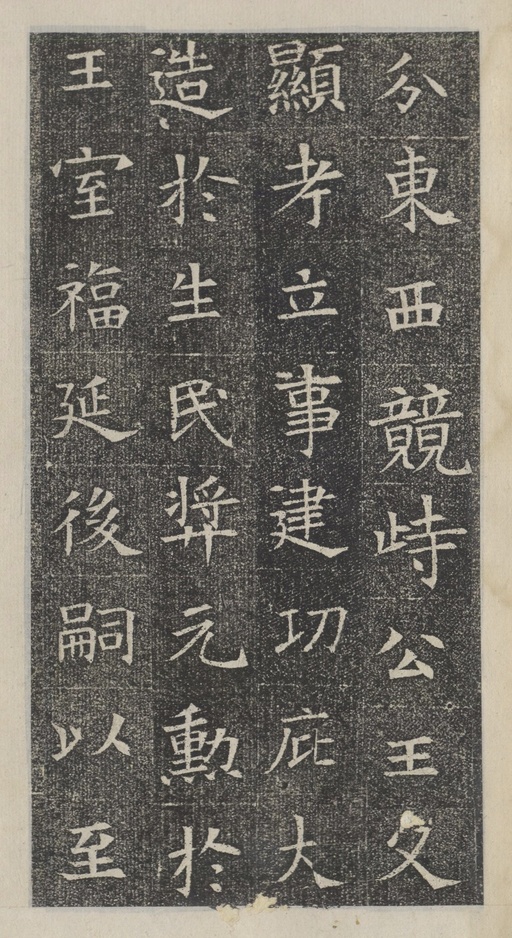 分東西競峙公王父
顯考立事建功庇大
造於生民弉元勳於
王室福延後嗣以至